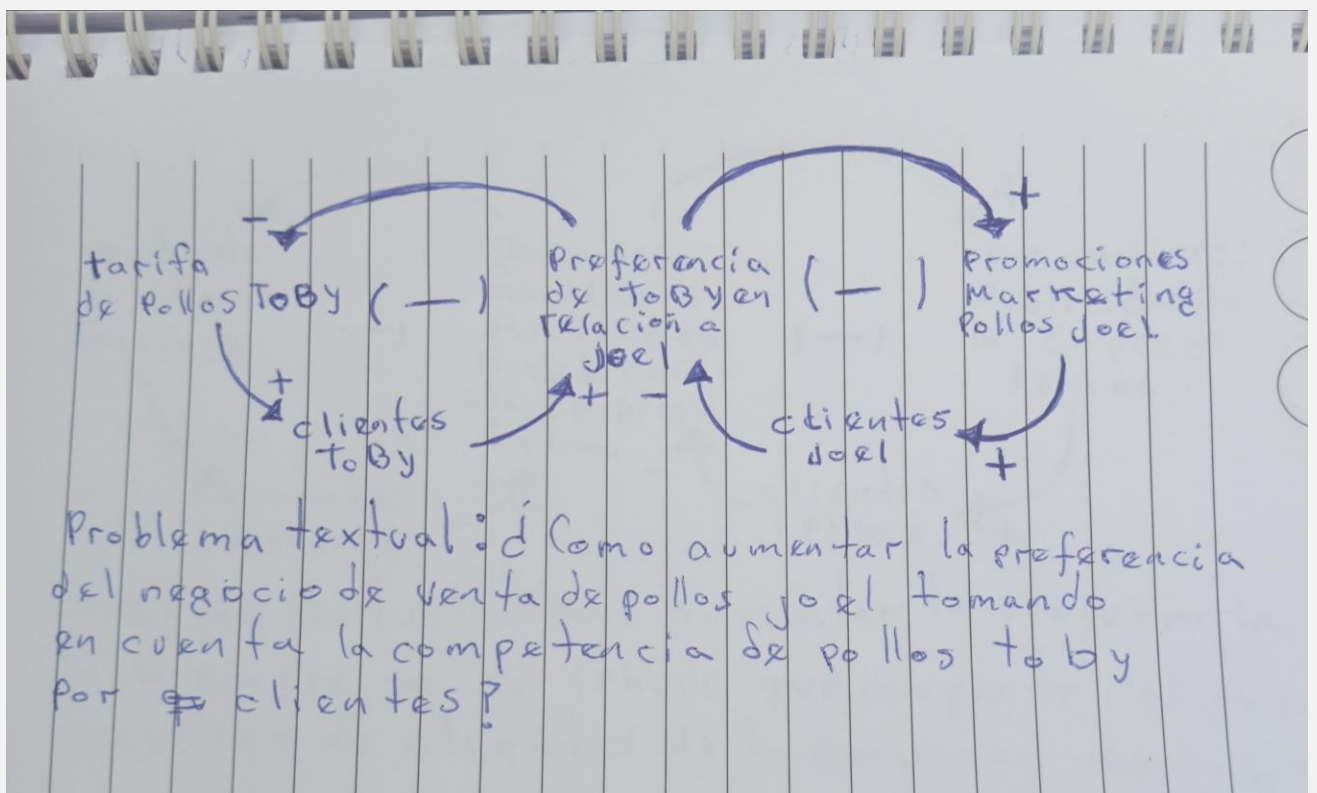 -
+
tarifa
de pollos ToBy (—)
Preferencia
de ToBy en
relación a
joel
(—)
promociones
Marketing
Pollos joel
+
clientes
ToBy
+ -
clientes
joel
+
Problema textual: ¿Como aumentar la preferencia
del negocio de venta de pollos joel tomando
en cuenta la competencia de pollos toby
por clientes?